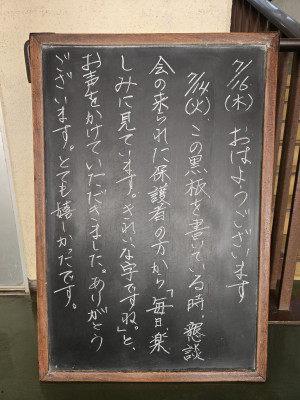 7/16(木) おはようございます
7/14(火)、この黒板を書いている時、懇談
会の来られた保護者の方から「毎日楽
しみに見ています。きれいな字ですね。」と、
お声をかけていただきました。ありがとう
ございます。とても嬉しかったです。